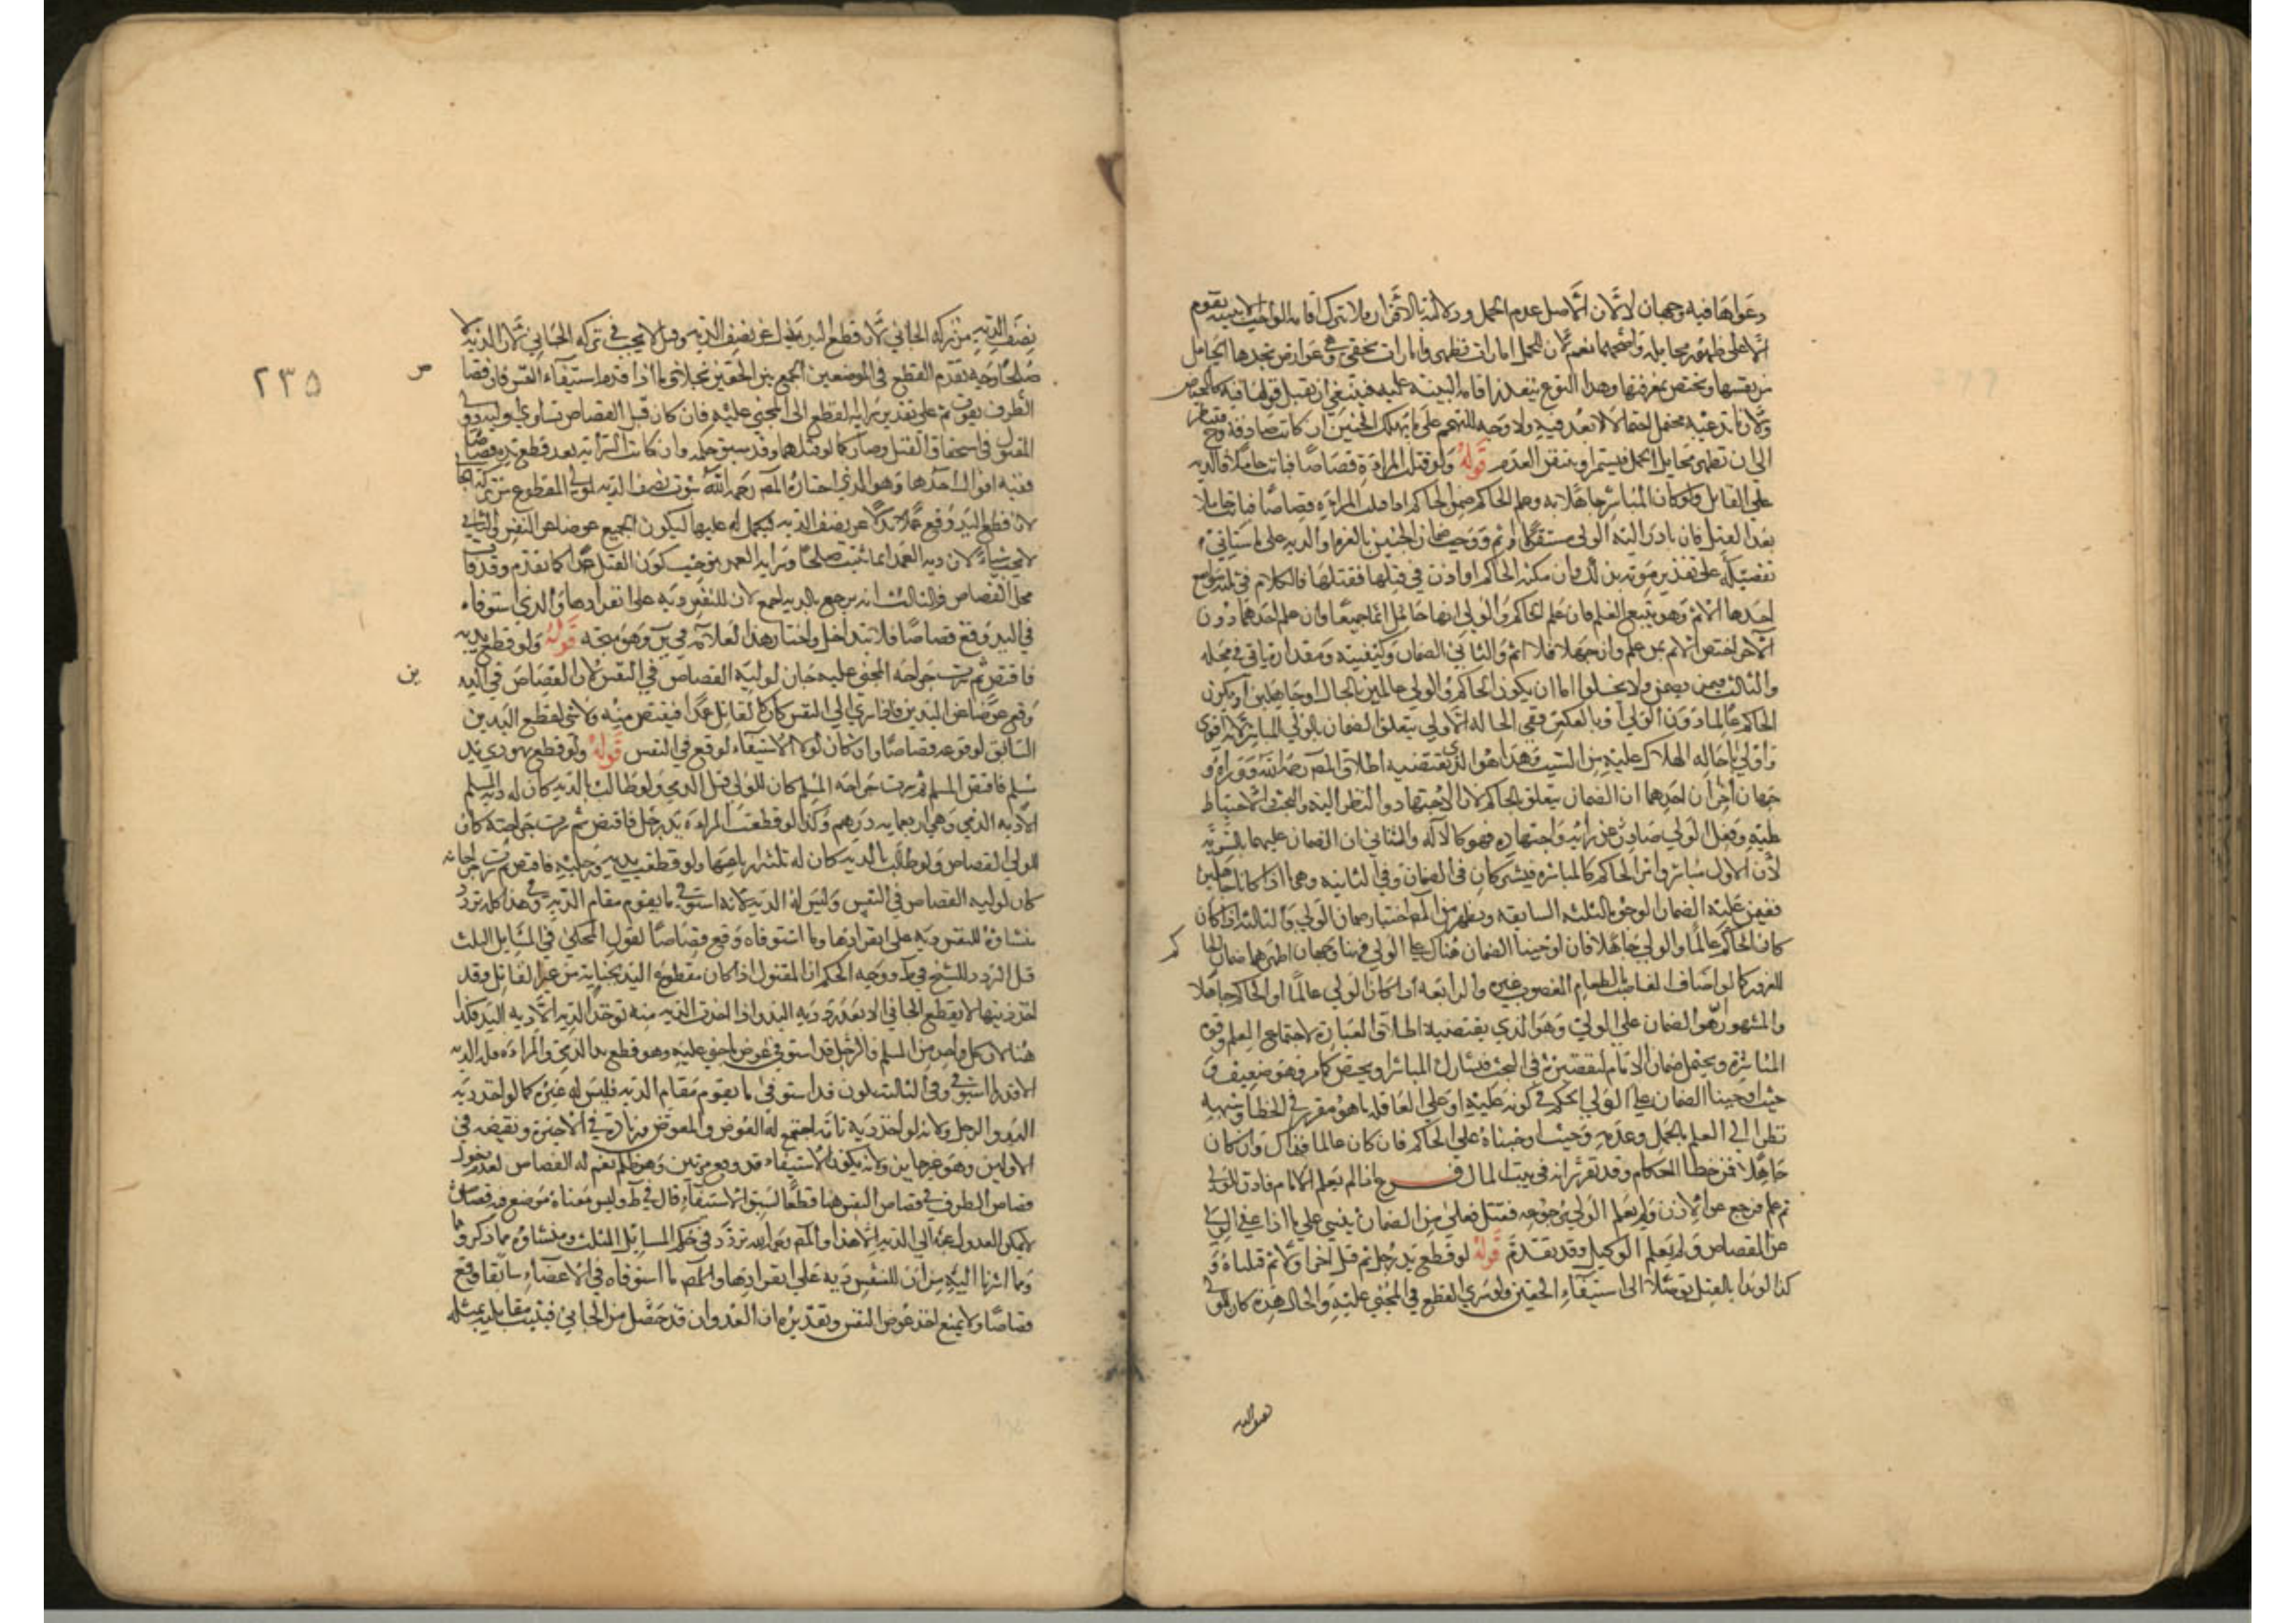 دعواها فيه وجهان لا لان الاصل عدم الحمل ودلالته بالاقران ولا تترك اقامة الواجب الا ببينة يقوم
الا على ظهور مخايله واصحهما نعم لان للحمل امارات تظهر وامارات تخفى وهي عوارض تجدها الحامل
من نفسها وتختص بمعرفتها وهذا النوع يتعذر اقامة البينة عليه فينبغي ان يقبل قولها فيه كالحيض
ولان ما تدعيه محتمل احتمالا لا بعد فيه ولا وجه للتهجم على ما يهلك الجنين ان كانت صادقة وح فتنتظر
الى ان تظهر مخايل الحمل فيستمر او يتقن العدم قوله ولو قتلت المراة قصاصا فبانت حاملا فالدية
على القاتل ولو كان المباشر جاهلا به وعلم الحاكم ضمن الحاكم اذا قتلت المراة قصاصا فبانت حاملا
بعد القتل فان بادر اليه الولي مستقلا اثم ووجب ضمان الجنين بالغرة او الدية على ما سياتي
تفصيله على تقدير موته بذلك وان مكنه الحاكم او اذن في قتلها فقتلها فالكلام في ثلثة مواضع
احدها الاثم وهو يتبع العلم فان علم الحاكم والولي انها حامل اثما جميعا وان علم احدهما دون
الاخر اختص الاثم بمن علم وان جهلا فلا اثم والثاني الضمان وكيفيته ومقداره ياتي في محله
والثالث فيمن يضمن ولا يخلوا اما ان يكون الحاكم والولي عالمين بالحال او جاهلين او يكون
الحاكم عالما دون الولي او بالعكس ففي الحالة الاولى يتعلق الضمان بالولي المباشر لانه اقوى
واولى باحالة الهلاك عليه من السبب وهذا هو الذي يقتضيه اطلاق المص رحمه الله ووراءه
جهان اخران احدهما ان الضمان يتعلق بالحاكم لان الاجتهاد والنظر اليه والبحث والاحتياط
عليه وفعل الولي صادر عن رايه واجتهاده فهو كالآلة والثاني ان الضمان عليهما بالسوية
لان الاول مباشر وامر الحاكم كالمباشرة فيشتركان في الضمان وفي الثانية وهي ما اذا كانا جاهلين
ففيمن عليه الضمان الوجوه الثلثة السابقة ويظهر من المص اختيار ضمان الولي والثالثة اذا كان
كان الحاكم عالما والولي جاهلا فان اوجبنا الضمان هناك على الولي فهنا وجهان اظهرهما ضمان الحا
كم
للغرور كما لو اضاف الغاصب الطعام المغصوب غيره والرابعة اذا كان الولي عالما والحاكم جاهلا
والمشهور هو الضمان على الولي وهو الذي يقتضيه اطلاق العبارة لاجتماع العلم وقوة
المباشرة ويحتمل ضمان الامام لتقصيره في البحث فيشارك المباشر او يختص كما مر وهو ضعيف و
حيث اوجبنا الضمان على الولي الحكم في كونه عليه او على العاقلة ما هو مقرر في الخطا وشبهه
نظرا الى العلم بالحمل وعدمه وحيث اوجبناه على الحاكم فان كان عالما فهناك وان كان
جاهلا فمن خطا الحكام وقد تقرر انه في بيت المال فرع اذا لم يعلم الامام فاذن للولي
ثم علم فرجع عن الاذن ولم يعلم الولي برجوعه فقتل فعلى من الضمان يبنى على ما اذا عفى الولي
عن القصاص ولم يعلم الوكيل وقد تقدم قوله لو قطع يد رجل ثم قتل اخر او لا ثم قتلناه و
كذا لو بدا بالقتل توصلا الى استيفاء الحقين ولو سرى القطع في المجني عليه والحال هذه كان للولي
نصف الدية
٢٣٥
نصف الدية من تركة الجاني لان قطع اليد بدل عن نصف الدية وقيل لا يجب في تركة الجاني لان الدية لا
ص
صلحا وجه تقدم القطع في الموضعين الجمع بين الحقين بخلاف ما اذا قدم استيفاء النفس فان قصا
الطرف يفوت ثم على تقدير سراية القطع الى المجني عليه فان كان قبل القصاص تساوى وليه وو
المقتول في استحقاق القتل وصار كما لو قتلهما وقد سبق حكمه وان كانت السراية بعد قطع يده قصاصا
ففيه اقوال احدها وهو الذي اختاره المص رحمه الله ثبوت نصف الدية لولي المقطوع من تركة الجا
لان قطع اليد وقع بدلا عن نصف الدية فيكمل له عليها ليكون الجميع عوضا عن النفس والثاني
لا يجب شيء لان دية العمد انما تثبت صلحا وسراية العمد يوجب كون القتل عمدا كما تقدم وقد فات
محل القصاص والثالث انه يرجع بالدية اجمع لان للنفس دية على انفرادها والذي استوفاه
في اليد وقع قصاصا فلا تتداخل واختار هذا العلامة في ير وهو متجه قوله ولو قطع يديه
ين
فاقتص ثم سرت جراحة المجني عليه جاز لوليه القصاص في النفس لان القصاص في اليد
وقع عوضا عن اليدين فاذا سرى الى النفس كان القاتل عمدا فيقتص منه ولا شي لقطع اليدين
السابق لوقوعه قصاصا وان كان لولا الاستيفاء لوقع في النفس قوله ولو قطع يهودي يد
مسلم فاقتص المسلم ثم سرت جراحة المسلم كان للولي قتل الذمي ولو طالب بالدية كان له دية المسلم
الا دية الذمي وهي اربعماية درهم وكذا لو قطعت المراة يد رجل فاقتص ثم سرت جراحته كان
للولي القصاص ولو طالب بالدية كان له ثلثة ارباعها ولو قطعت يديه ورجليه فاقتص ثم سرت جراحاته
كان لوليه القصاص في النفس وليس له الدية لانه استوفى ما يقوم مقام الدية وفي هذا كله تردد
منشاؤه للنفس دية على انفرادها وما استوفاه وقع قصاصا القول المحكي في المسايل الثلث
قبل التردد للشيخ في ط ووجه الحكم ان المقتول اذا كان مقطوع اليد بجناية من غير القاتل وقد
اخذ ديتها لا يقطع الجاني الا بعد رد دية اليد واذا اخذت الدية منه توخذ الدية الا دية اليد فكذا
هنا لان كل واحد من المسلم والرجل قد استوفى عوض ما جني عليه وهو قطع يد الذمي والمراة فله الدية
الا قدر ما استوفى وفي الثالثة يكون قد استوفى ما يقوم مقام الدية فليس له غيره كما لو اخذ دية
اليد والرجل ولانه لو اخذ دية تامة اجتمع له العوض والمعوض مع زيادة في الاخيرة ونقيضه في
الاولين وهو غير جايز ولانه يكون الاستيفاء قد وقع مرتين وهو ظلم نعم له القصاص لعدم دخول
قصاص الطرف في قصاص النفس هنا قطعا لسبق الاستيفاء قال في ط وليس معناه موضع فيه قصاص
لا يمكن العدول عنه الى الدية الا هذا والمص رحمه الله تردد في حكم المسايل الثلث ومنشاؤه مما ذكر و
مما اشرنا اليه من ان للنفس دية على انفرادها والمص ما استوفاه في الاعضاء سابقا وقع
قصاصا ولا يمنع اخذ عوض النفس وتقديره ان العدوان قد حصل من الجاني فيثبت مقابله بمثله